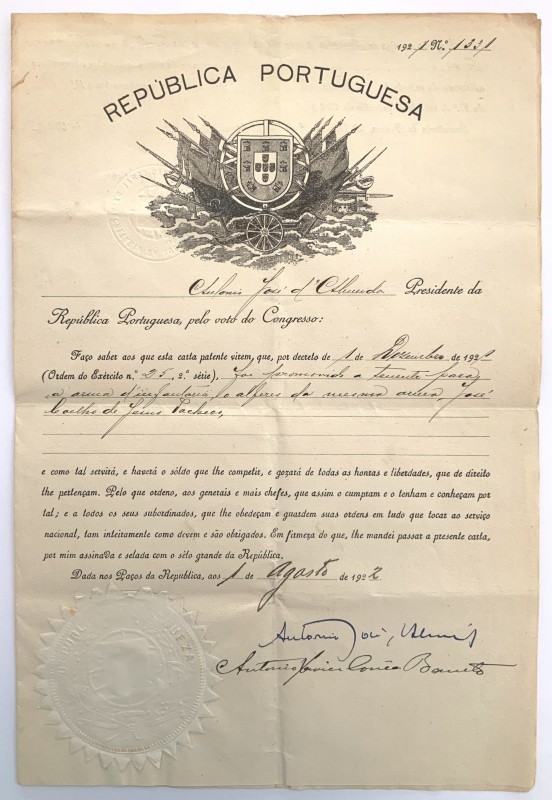 1921 N.º 1331
REPÚBLICA PORTUGUESA
Antonio José d'Almeida Presidente da
República Portuguesa, pelo voto do Congresso:
Faço saber aos que esta carta patente virem, que, por decreto de 1 de Dezembro de 1921
(Ordem do Exército n.º 25, 2.ª série), foi promovido a tenente para
a arma d'infantaria, o alferes da mesma arma, José
Coelho de Jesus Pacheco,
e como tal servirá, e haverá o sôldo que lhe competir, e gozará de todas as honras e liberdades, que de direito
lhe pertençam. Pelo que ordeno, aos generais e mais chefes, que assim o cumpram e o tenham e conheçam por
tal; e a todos os seus subordinados, que lhe obedeçam e guardem suas ordens em tudo que tocar ao serviço
nacional, tam inteiramente como devem e são obrigados. Em firmeza do que, lhe mandei passar a presente carta,
por mim assinada e selada com o sêlo grande da República.
Dada nos Paços da República, aos 1 de Agosto de 1922
Antonio José d'Almeida
Antonio Xavier Corrêa Barreto